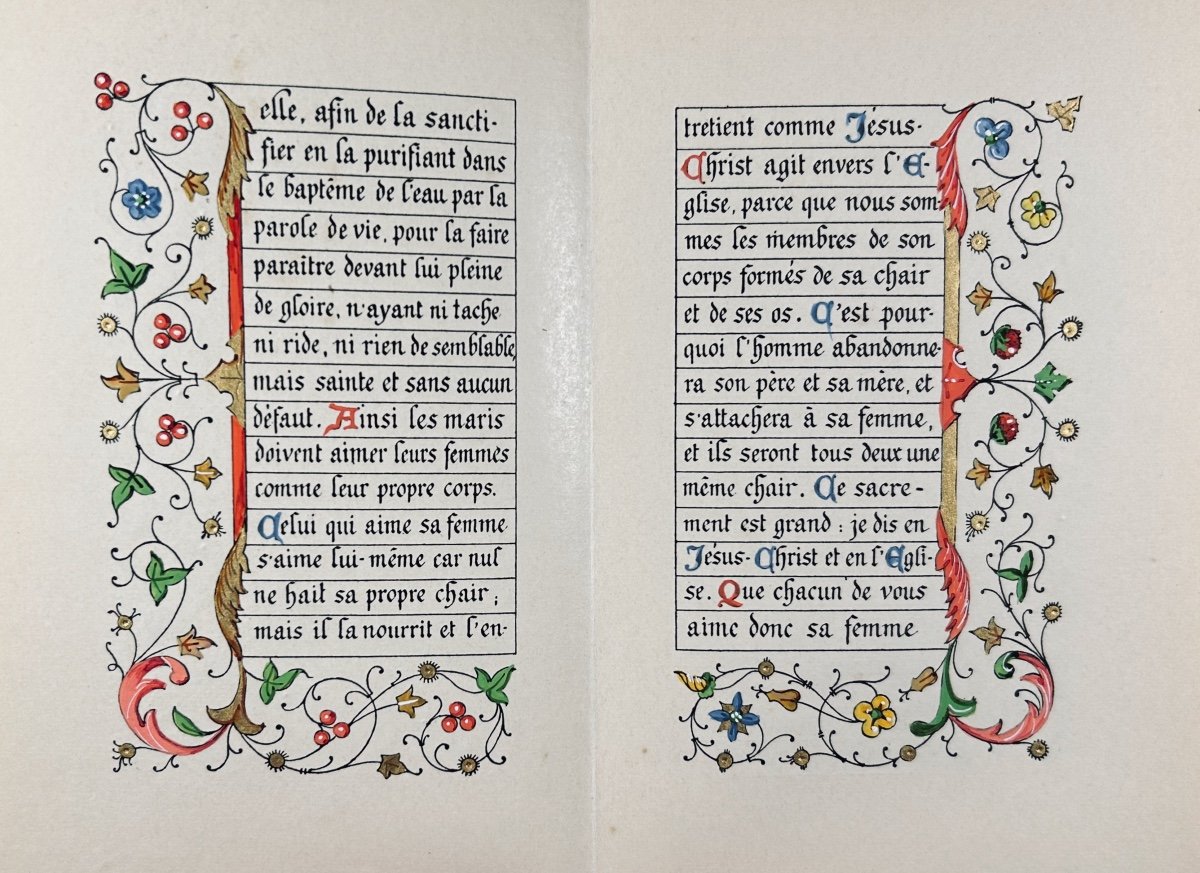 elle, afin de la sancti-
fier en la purifiant dans
le baptême de l'eau par la
parole de vie, pour la faire
paraitre devant lui pleine
de gloire, n'ayant ni tache
ni ride, ni rien de semblable,
mais sainte et sans aucun
défaut. Ainsi les maris
doivent aimer leurs femmes
comme leur propre corps.
Celui qui aime sa femme
s'aime lui-même car nul
ne hait sa propre chair ;
mais il la nourrit et l'en-
tretient comme Jésus-
Christ agit envers l'E-
glise, parce que nous som-
mes les membres de son
corps formés de sa chair
et de ses os. C'est pour-
quoi l'homme abandonne-
ra son père et sa mère, et
s'attachera à sa femme,
et ils seront tous deux une
même chair. Ce sacre-
ment est grand : je dis en
Jésus-Christ et en l'Egli-
se. Que chacun de vous
aime donc sa femme